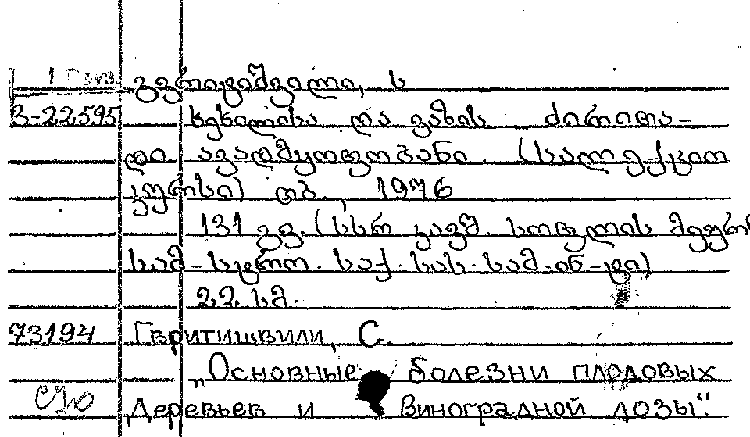 გვრიტიშვილი, ს
3-22595 ხეხილისა და ვაზის ძირითა-
დი ავადმყოფობანი. (სალექციო
კურსი) თბ., 1976
131 გვ. (სსრ კავშ. სოფლის მეურნ
სამ-სტრო. საქ. სას. სამ. ინ-ტი)
22 სმ.
73194 Гвритишвили, С.
„Основные болезни плодовых
деревьев и виноградной лозы".